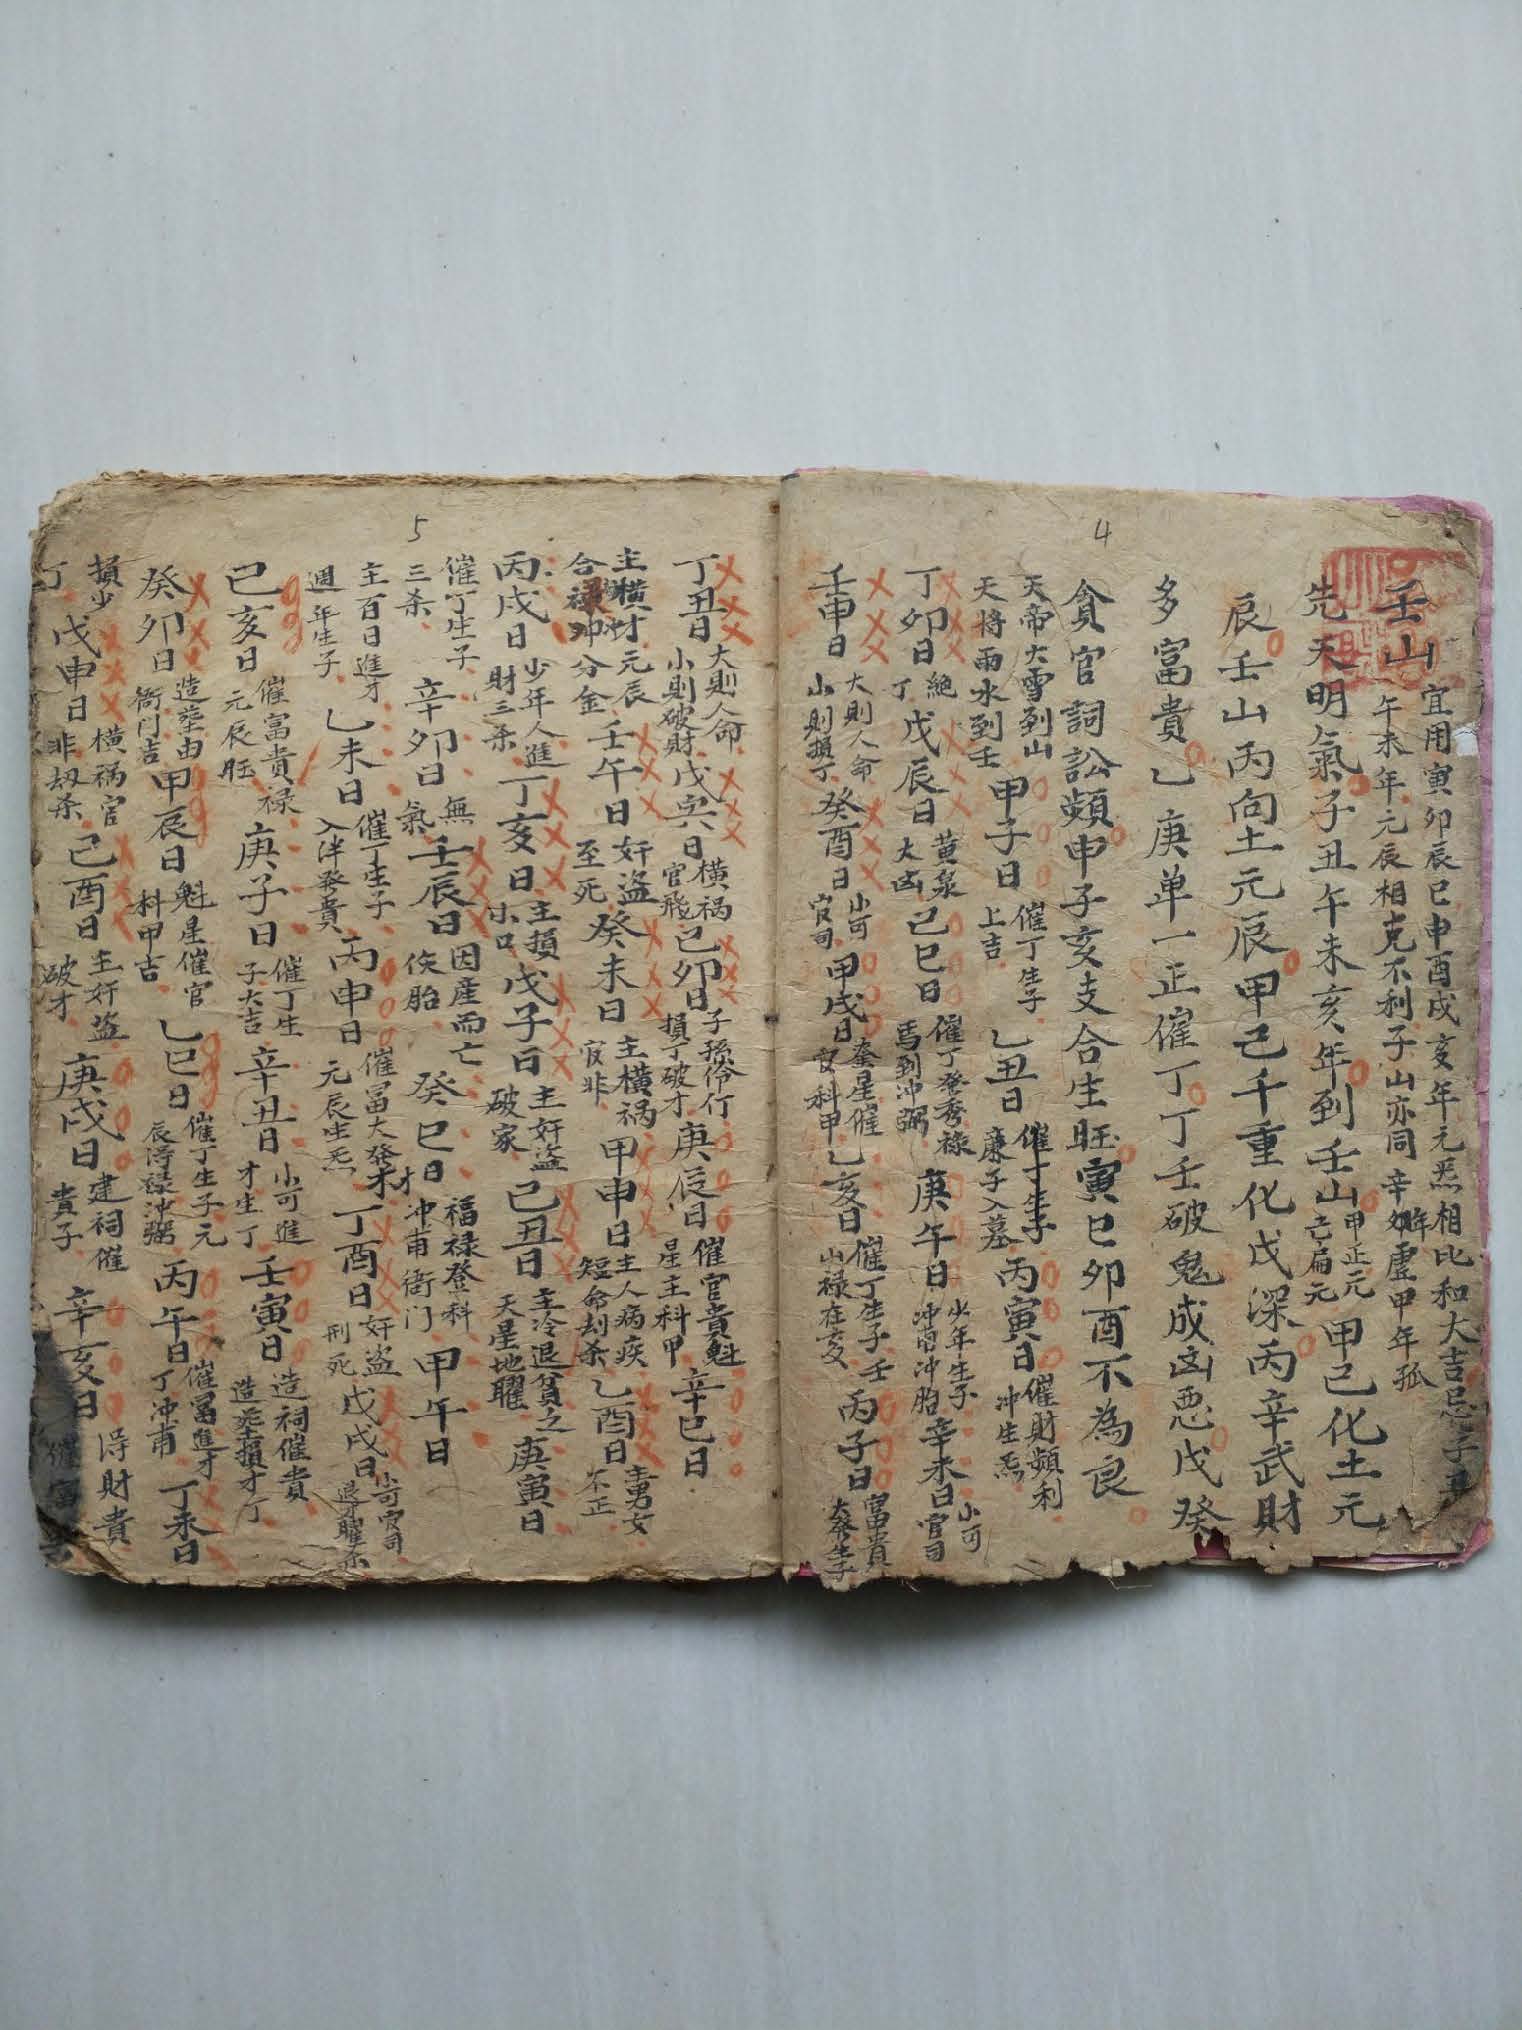 4
壬山 宜用寅卯辰巳申酉戌亥年元炁相比和大吉忌子丑
午未年元辰相克不利子山亦同辛卯年虛甲年孤
先天明氣子丑午未亥年到壬山甲正元己扁元甲己化土元
辰壬山丙向土元辰甲己千重化戊深丙辛武財
多富貴乙庚单一正催丁丁壬破鬼成凶悪戊癸
貪官詞訟頻申子亥支合生旺寅巳卯酉不為良
天帝大雪到山天將雨水到壬 甲子日催丁生子上吉 乙丑日催丁生子廉子入墓 丙寅日催財頻利冲生炁
丁卯日絶丁 戊辰日黄泉大凶 己巳日催丁發秀祿馬到冲弼 庚午日少年生子冲宮冲胎 辛未日小可官司
壬申日大則人命小則損丁 癸酉日小可官司 甲戌日奎星催官科甲 乙亥日催丁生子壬山禄在亥 丙子日富貴大發生子
5
丁丑日大則人命小則破財 戊寅日横祸官飛 己卯日子孫伶仃損丁破才 庚辰日催官貴魁星主科甲 辛巳日
主横才元辰合祿冲分金 壬午日奸盗至死 癸未日主横祸官非 甲申日主人病疾短命刦杀 乙酉日主男女不正
丙戌日少年人進財三杀 丁亥日主損小口 戊子日主奸盗破家 己丑日主冷退貧乏天星地曜 庚寅日
催丁生子三杀 辛卯日無氣 壬辰日因産而亡侠胎 癸巳日福禄登科冲甫衙门 甲午日
主百日進才週年生子 乙未日催丁生子入泮發貴 丙申日催富大發才元辰生炁 丁酉日奸盗刑死 戊戌日小可官司退才曜杀
己亥日催富貴禄元辰旺 庚子日催丁生子大吉 辛丑日小可進才生丁 壬寅日造祠催貴造塟損才丁
癸卯日造塟由衙门吉 甲辰日魁星催官科甲吉 乙巳日催丁生子元辰得禄冲弼 丙午日催富進才丁冲甫 丁未日
損少丁 戊申日横祸官非刼杀 己酉日主奸盗破才 庚戌日建祠催貴子 辛亥日得財貴催富